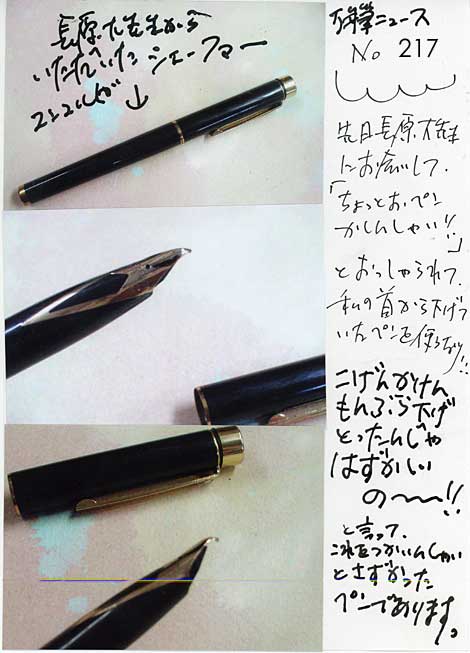 長原大先生から
いただいた シェーファー
ニュース
No 217
先日長原大先生
にお会いして、
「ちょっとおペン
かしんしゃい!!」
とおっしゃられて、
私の首から下げて
いたペンを使うなり!!
こげんかけん
もんぶら下げ
とったんじゃ
はずかしい
の〜〜!!
と言って、
これをつかいんしゃい
とさずかった
ペンであります。